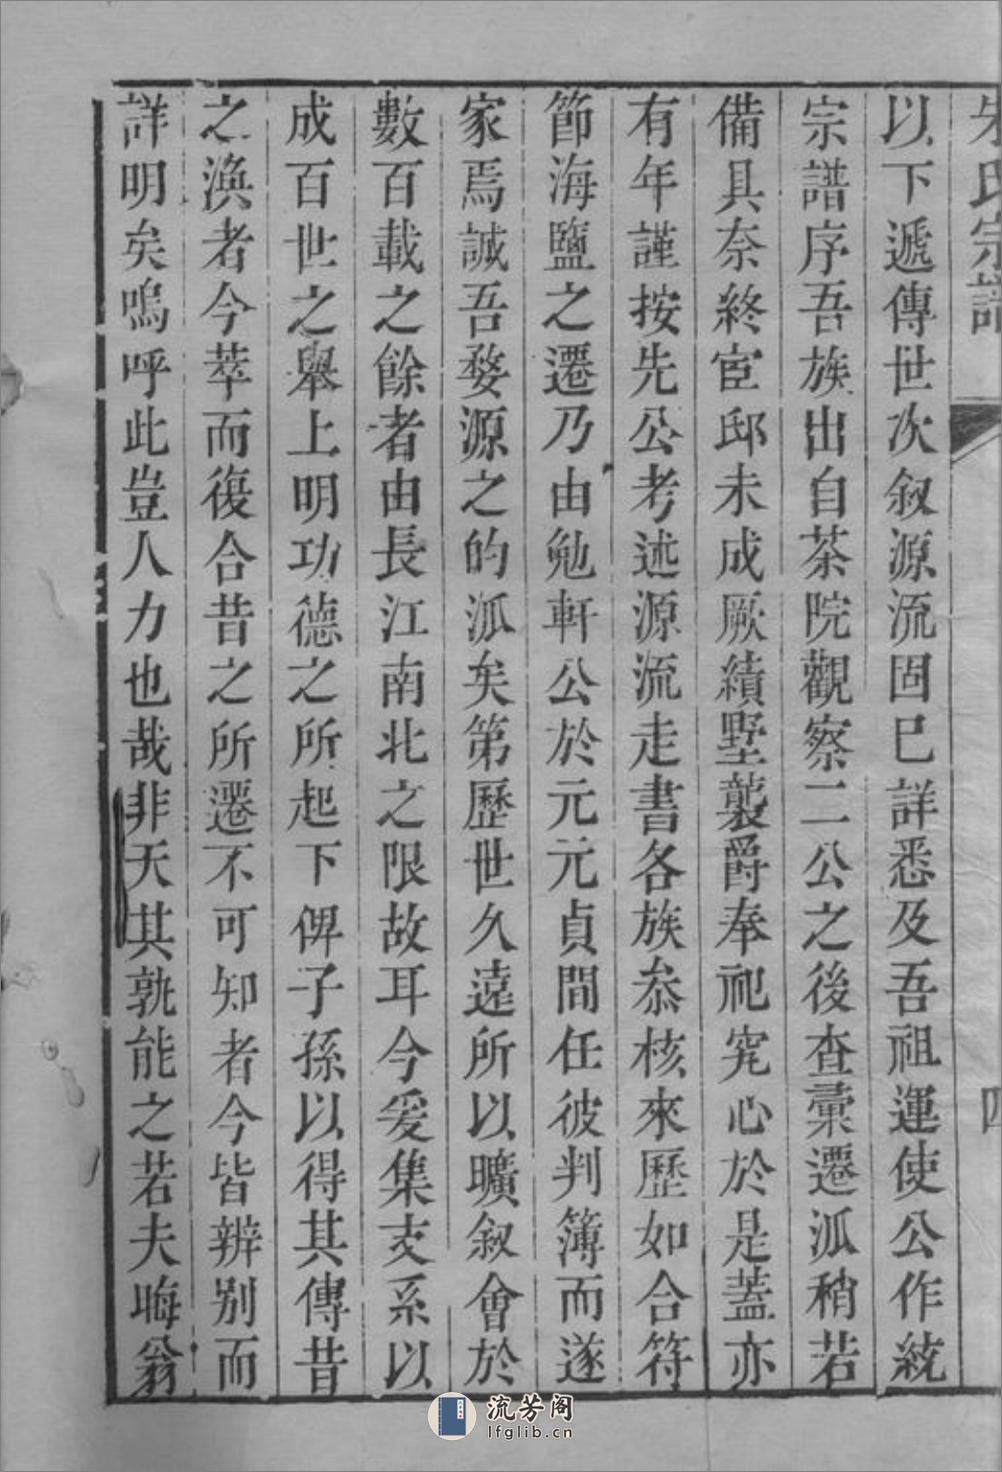 朱氏宗譜
四
以下遞傳世次叙源流固巳詳悉及吾祖運使公作統
宗譜序吾族出自茶院觀察二公之後查彙遷派稍若
備具奈終宦邸未成厥績墅襲爵奉祀究心於是蓋亦
有年謹按先公考述源流走書各族叅核來歷如合符
節海鹽之遷乃由勉軒公於元元貞間任彼判簿而遂
家焉誠吾婺源之的派矣第歷世久遠所以曠叙會於
數百載之餘者由長江南北之限故耳今爰集支系以
成百世之舉上明功德之所起下俾子孫以得其傳昔
之渙者今萃而復合昔之所遷不可知者今皆辨别而
詳明矣嗚呼此豈人力也哉非天其孰能之若夫晦翁
流芳阁
lfglib.cn